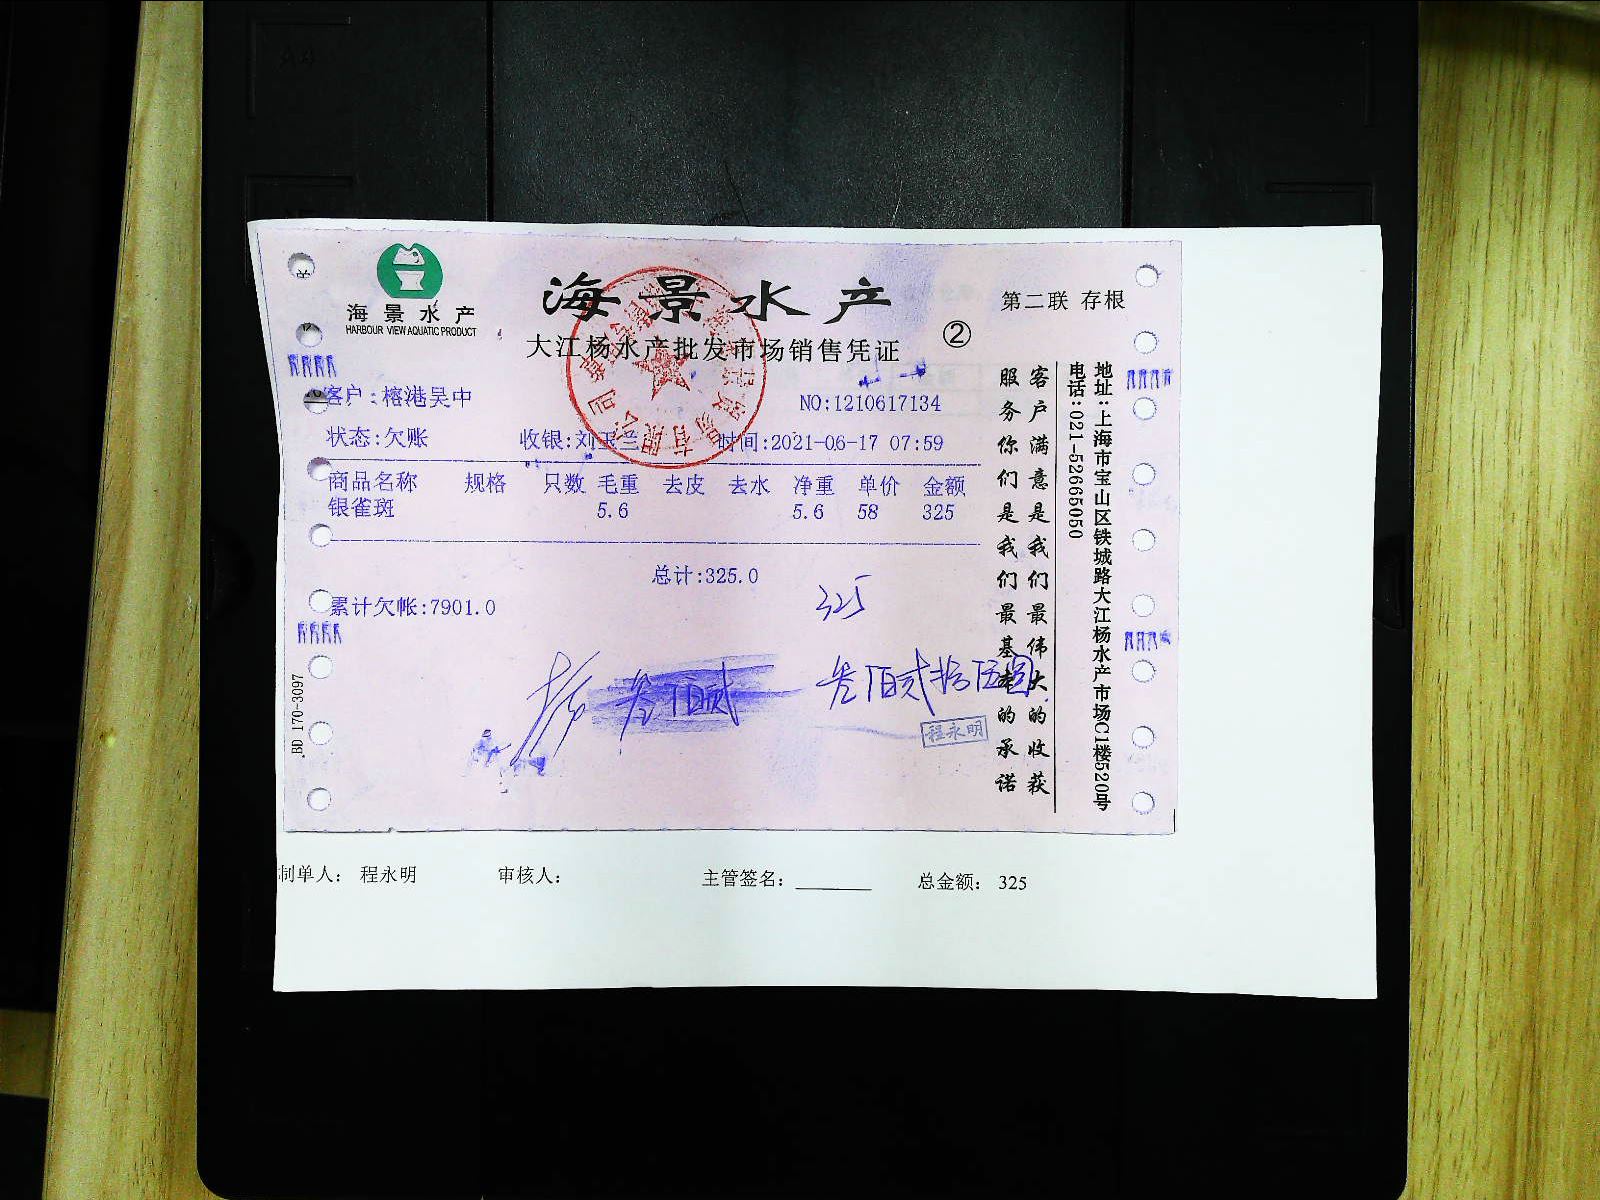 海景水产
HARBOUR VIEW AQUATIC PRODUCT
海景水产
大江杨水产批发市场销售凭证
②
第二联 存根
客户:榕港吴中
NO:1210617134
状态:欠账 收银:刘玉兰 时间:2021-06-17 07:59
商品名称 规格 只数 毛重 去皮 去水 净重 单价 金额
银雀斑 5.6 5.6 58 325
总计:325.0
累计欠帐:7901.0
325
叁佰贰
叁佰贰拾伍圆
程永明
客户满意是我们最伟大的收获
服务你们是我们最基本的承诺
地址:上海市宝山区铁城路大江杨水产市场C1楼520号
电话:021-52665050
.BD 170-3097
制单人: 程永明 审核人: 主管签名: 总金额: 325